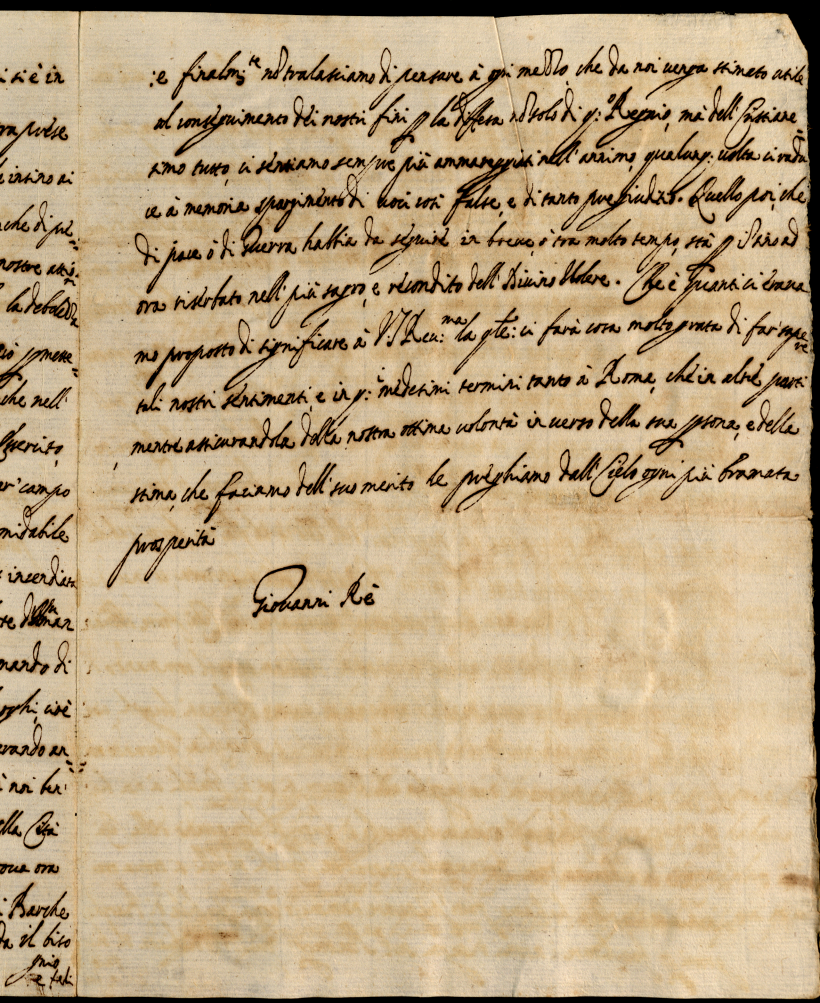 i si è in
ora prese
intino ai
che di più
nostre
la debolezza
che nell'
Esercito,
campo
midabile
incendiata
mando di
oghi, cioè
erando an
noi ben
ella Città
ova ora
Barche
da il biso
gnio
e tali
:e finalm:te nõ tralasciamo di pensare à ogni mezzo, che da noi venga stimato utile
al conseguimento dei nostri fini p la difesa nõ solo di q:o Regnio, mà dell'Cristiane
simo tutto, ci sentiamo sempre più ammareggiati nell'annimo, qualunq: volta ci radu
ce à memoria spargimento di voci così false, e di tanto pregiudizio. Quello poi, che
di pace ò di Guerra habbia da seguire in breve, ò tra molto tempo, stà p sino ad
ora riserbato nell'più sagro, e récondito dell'Divino Volere. Che è quanto ci erava
mo proposto di significare à V:S Reu:ma la qle: ci farà cosa molto grata di far sape
re
tali nostri sentimenti, e in q:i medesimi termini tanto à Roma, chè in altre parti
mentre assicurandola della nostra ottima volontà in verso della sua psona, e della
stima, che faciamo dell'suo merito le preghiamo dall'Cielo ogni più bramata
prosperità
Giovanni Rè